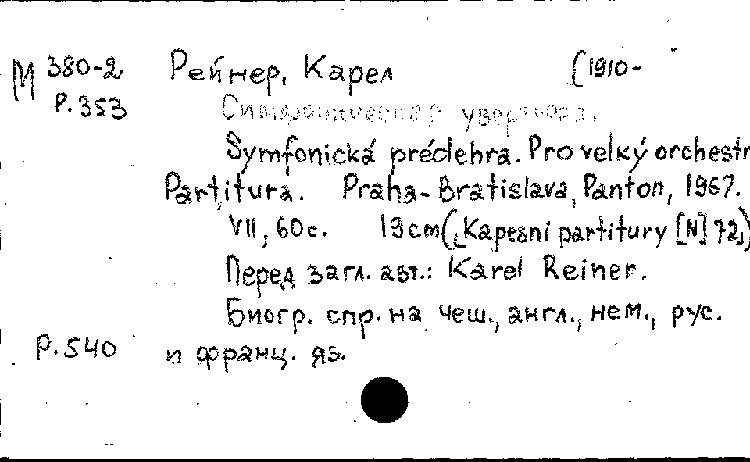 М 380-2 Рейнер, Карел [1910-
Р.353 Симфоническая увертюра.
Symfonická předehra. Pro velký orchestr
Partitura. Praha-Bratislava, Panton, 1967.
VII, 60 с. 19 cm („Kapesní partitury [N] 72„)
Перед загл. авт.: Karel Reiner.
Биогр. спр. на чеш., англ., нем., рус.
Р.540 и франц. яз.